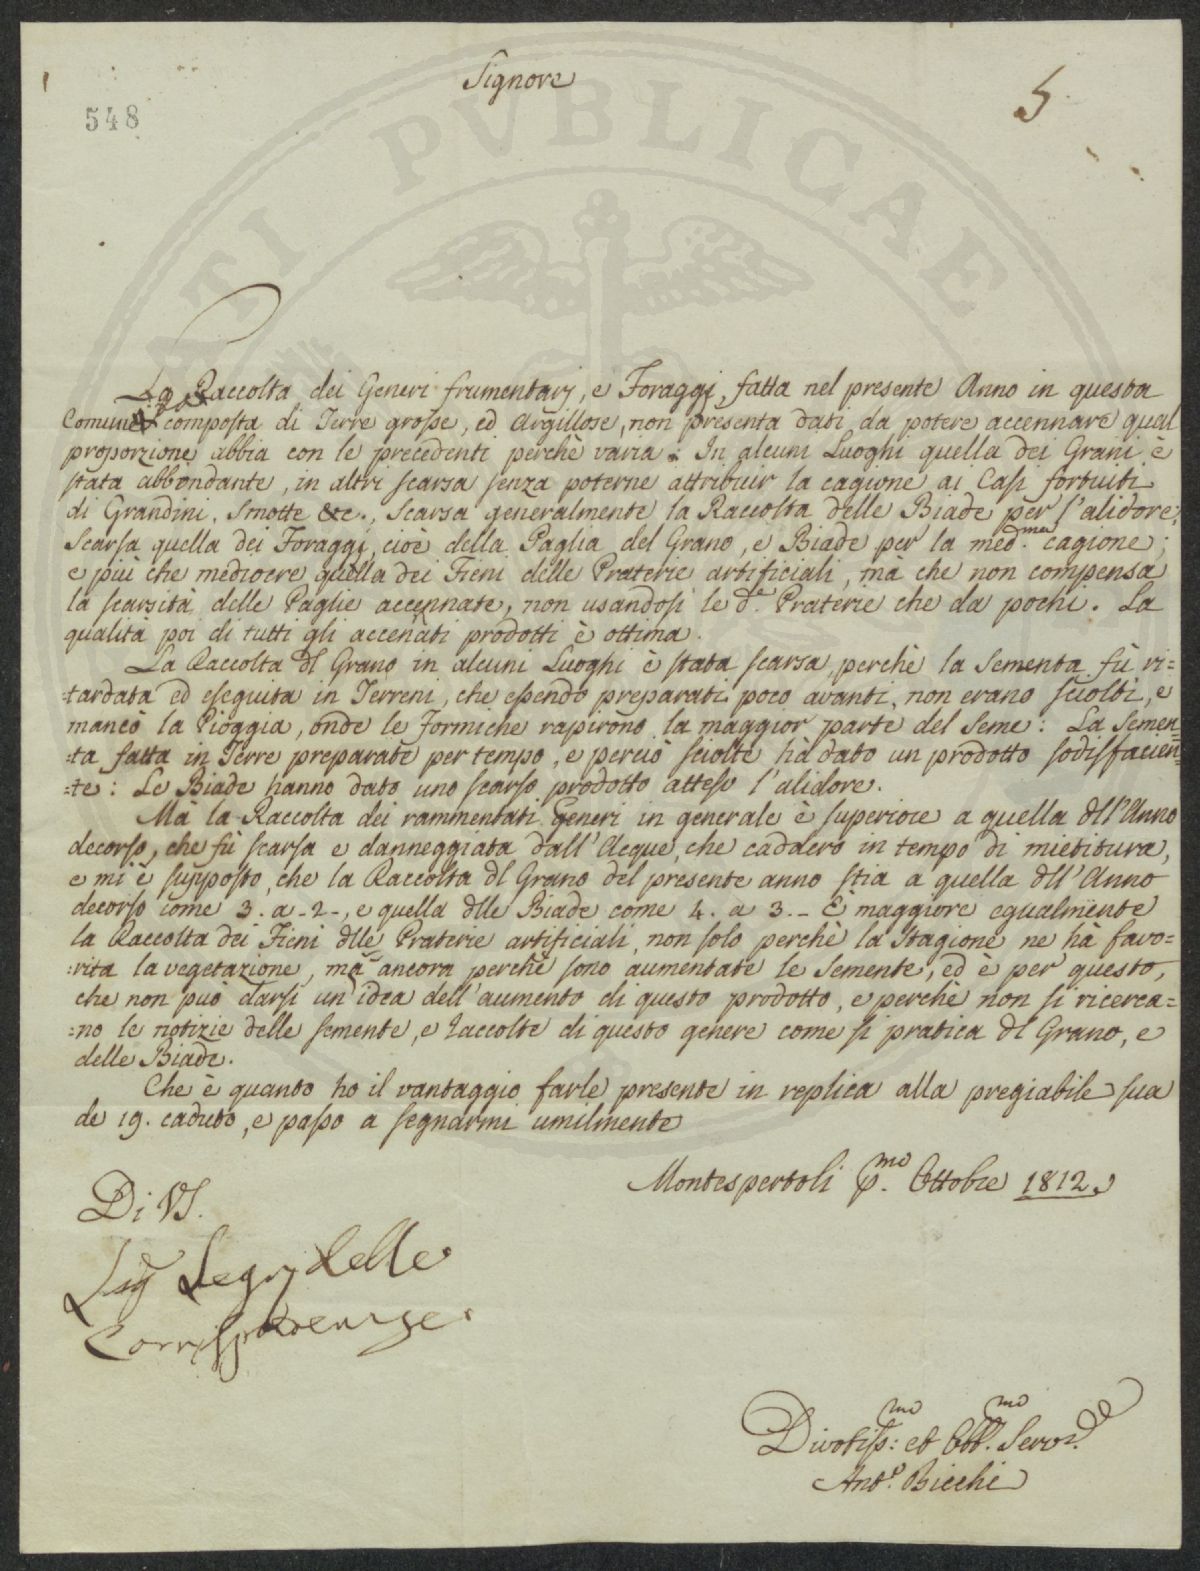 Signore
5
548
La Raccolta dei Generi frumentarj, e Foraggi, fatta nel presente Anno in questa
Comune composta di Terre grosse, ed Argillose, non presenta dati da potere accennare qual
proporzione abbia con le precedenti perchè varia. In alcuni Luoghi quella dei Grani è
stata abbondante, in altri scarsa senza poterne attribuir la cagione ai Casi fortuiti
di Grandini, Smotte &c., Scarsa generalmente la Raccolta delle Biade per l'alidore,
Scarsa quella dei Foraggi, cioè della Paglia del Grano, e Biade per la med.ma cagione;
e più che mediocre quella dei Fieni delle Praterie artificiali, mà che non compensa
la scarsità delle Paglie accennate, non usandosi le d.e Praterie che da pochi. La
qualità poi di tutti gli accenati prodotti è ottima.
La Raccolta dl Grano in alcuni Luoghi è stata scarsa, perchè la Sementa fù ri=
=tardata ed eseguita in Terreni, che essendo preparati poco avanti, non erano sciolti, e
mancò la Pioggia, onde le formiche rapirono la maggior parte del Seme: La Semen=
=ta fatta in Terre preparate per tempo, e perciò sciolte hà dato un prodotto sodisfacien=
=te: Le Biade hanno dato uno scarso prodotto atteso l'alidore.
Mà la Raccolta dei rammentati Generi in generale è superiore a quella dll'Anno
decorso, che fù scarsa e danneggiata dall'Acque, che caddero in tempo di mietitura,
e mi è supposto, che la Raccolta dl Grano del presente anno stia a quella dll'Anno
decorso come 3. a 2-, e quella dlle Biade come 4. a 3.- È maggiore egualmente
la Raccolta dei Fieni dlle Praterie artificiali, non solo perchè la Stagione ne hà favo=
=rita la vegetazione, mà ancora perchè sono aumentate le Semente, ed è per questo,
che non può darsi un'idea dell'aumento di questo prodotto, e perchè non si ricerca=
=no le notizie delle semente, e raccolte di questo genere come si pratica dl Grano, e
delle Biade.
Che è quanto ho il vantaggio farle presente in replica alla pregiabile sua
de 19. caduto, e passo a segnarmi umilmente
Montespertoli p.mo Ottobre 1812.
Di VS.
Sig Segrj delle
Corrispondenze
Divotiss:mo et Obb.mo Serv.re
Ant.o Bicchi
ATI PVBLICAE